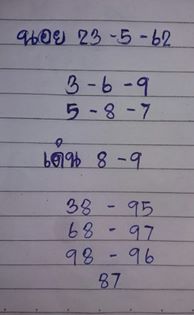 หวย 23 - 5 - 62
3 - 6 - 9
5 - 8 - 7
เด่น 8 - 9
38 - 95
68 - 97
98 - 96
87